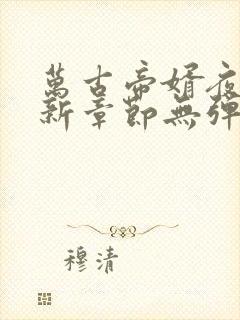 萬古帝婿夜
新章節無彈
穆清